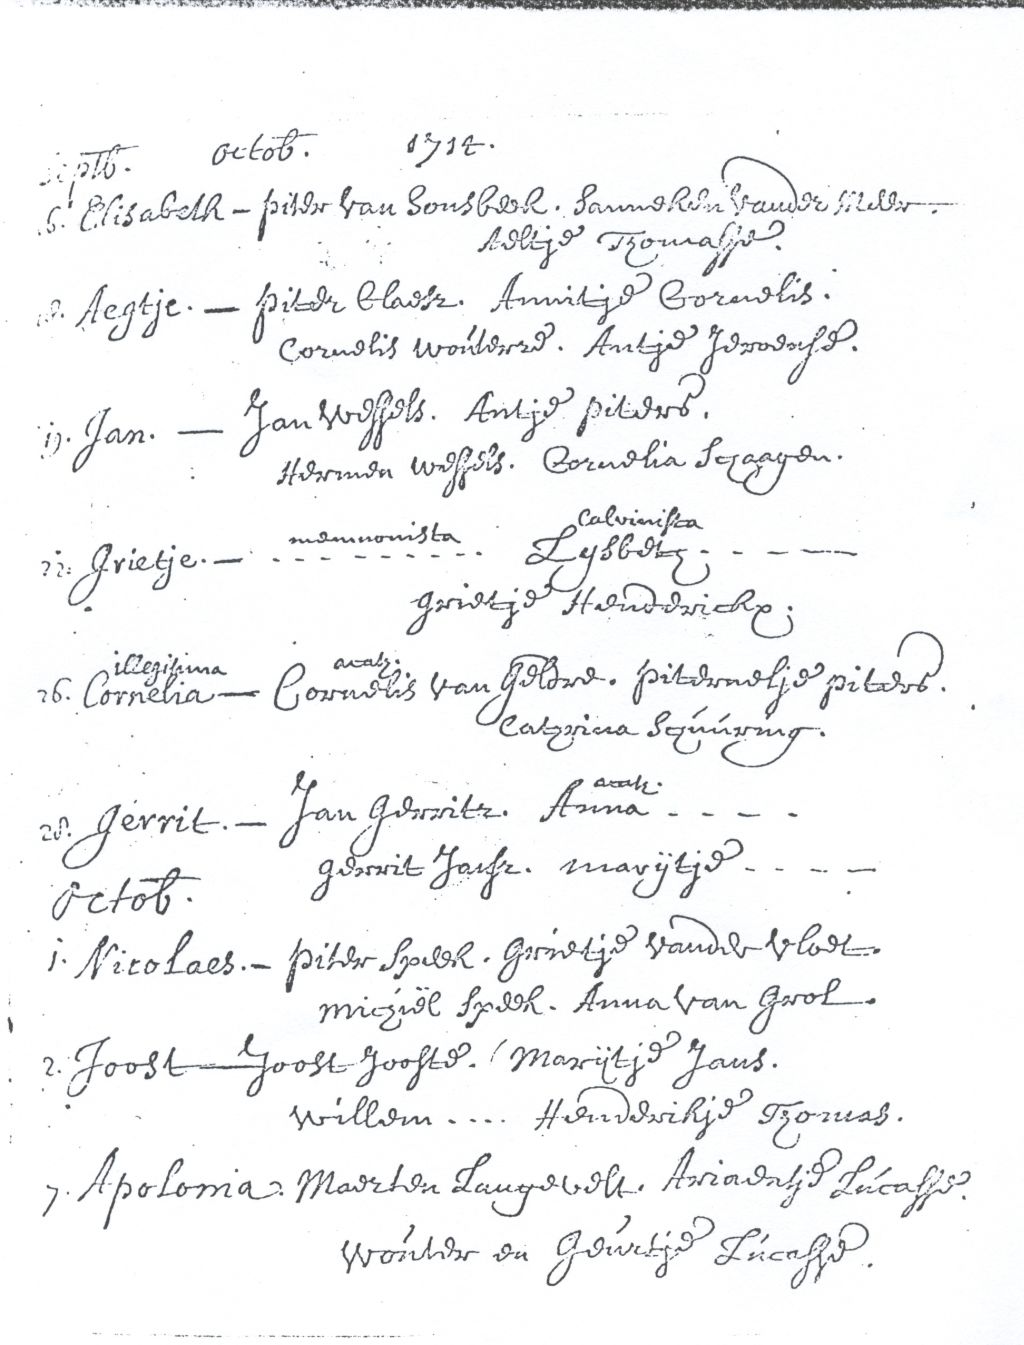 Septb. Octob. 1714.
16. Elisabeth - Piter van Sonsbeek. Sanneken vander Meer.
Aeltje Thomasse.
18. Aegtje. - Piter Claesz. Annitje Cornelis.
Cornelis Wouterze. Antje Jeroense.
19. Jan. - Jan Wessels. Antje Piters.
Hermen Wessels. Cornelia Schaagen.
memnonista Calvinista
22. Grietje. - - - - - - - - - Lysbeth - - - -
Grietje Henderickx.
illegitima acath.
26. Cornelia - Cornelis van Geldre. Piternelje Piters.
Cathrina Schuuring.
acath.
28. Gerrit. - Jan Gerritz. Anna - - - -
Gerrit Jansz. Marijtje - - - -
Octob.
1. Nicolaes. - Piter Speek. Grietje vander Vloet.
Michiël Speek. Anna van Grol.
2. Joost - Joost Jooste. Marijtje Jans.
Willem .... Henderikje Thomas.
7. Apolonia. Maerten Langevelt. Ariaentje Lúcasse.
Woúter en Geúrtje Lúcasse.